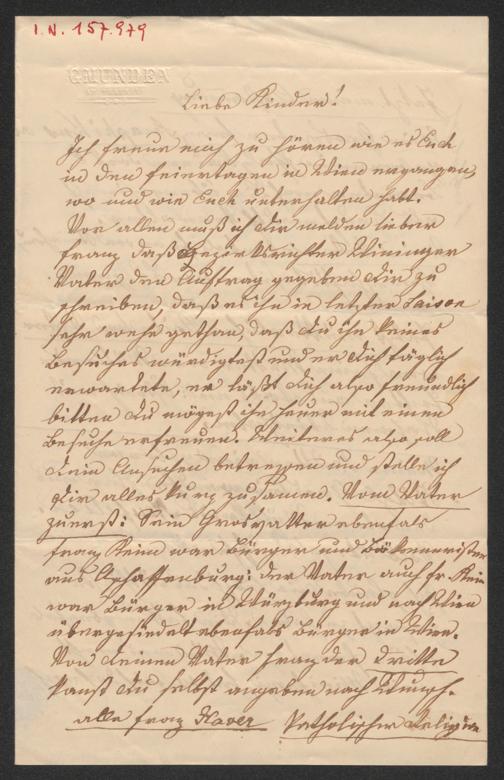 I.N. 157.979
GMUNDEN
Liebe Kinder!
Ich freue mich zu hören wie es Euch
in den Feiertagen in Wien ergangen,
wo und wie Euch unterhalten habt.
Vor allen muß ich dir melden lieber
Franz daß Bezirksrichter Wininger
Vater den Auftrag gegeben dir zu
schreiben, daß es ihn in letzter Saison
sehr wehe gethan, daß du ihn keines
Besuches würdigtest und er dich täglich
erwartete, er läßt dich also freundlich
bitten du mögest ihn heuer mit einen
Besuche erfreuen. Weiteres also soll
dein Ansuchen betreffen und stelle ich
dir alles kurz zusamen. Vom Vater
zuerst: Sein Grosvatter ebenfals
Franz Keim war Bürger und Bäkermeister
aus Aschaffenburg: der Vater auch Fr. Keim
war Bürger in Würzburg und nach Wien
übergesiedelt ebenfals Bürger in Wien.
Von deinen Vater Franz der Dritte
kanst du selbst angeben nach Wunsch.
alle Franz Xaver Katholischer Religion